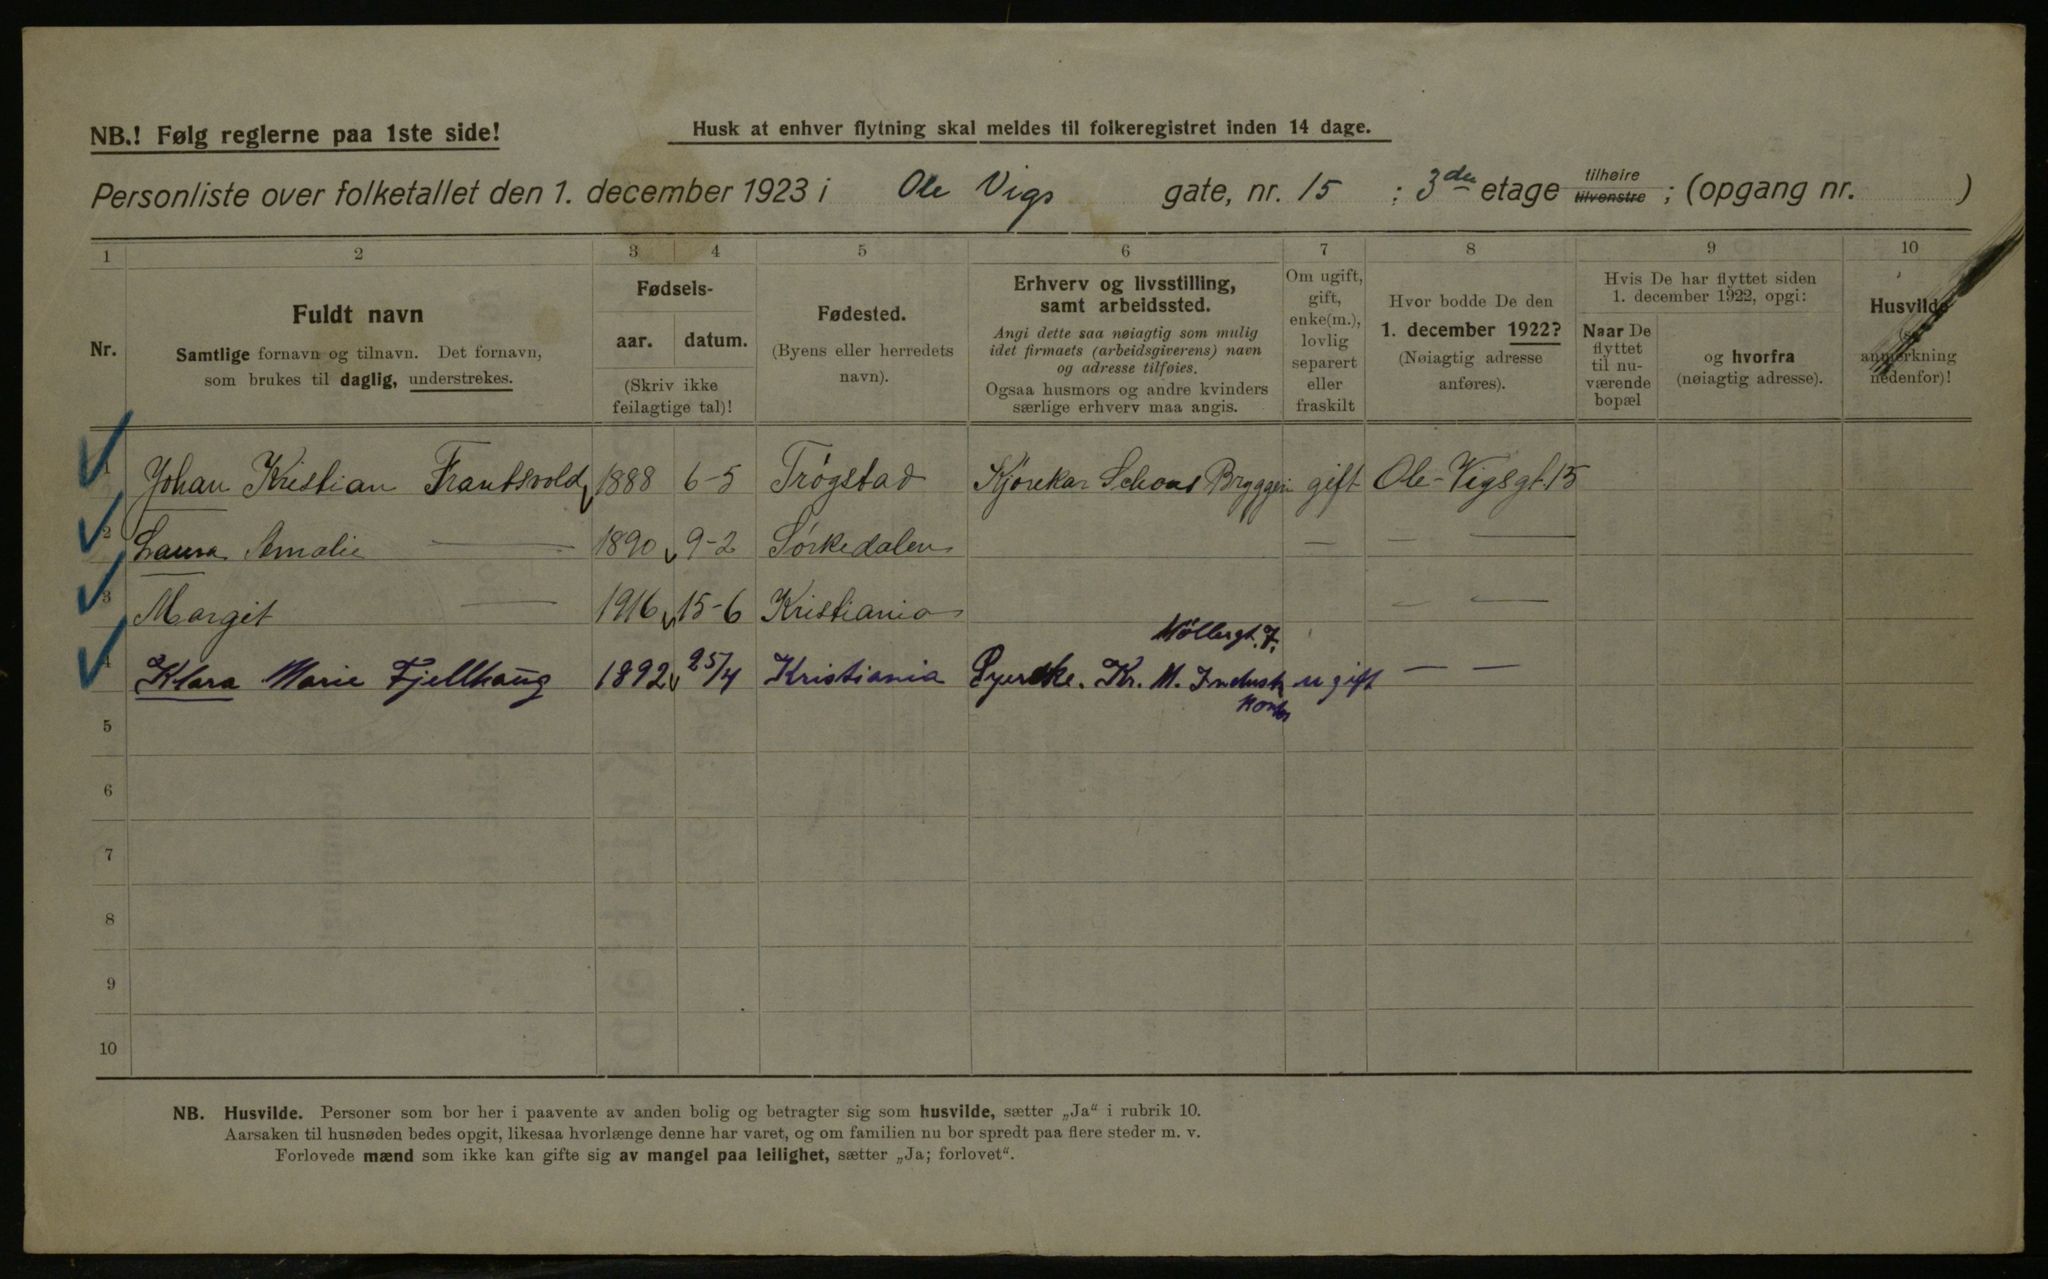 NB.! Følg reglerne paa 1ste side!
Husk at enhver flytning skal meldes til folkeregistret inden 14 dage.
Personliste over folketallet den 1. december 1923 i Ole Vigs gate, nr. 15 ; 3den etage tilhøire tilvenstre ; (opgang nr. )
1 2 3 4 5 6 7 8 9 10
Nr.
Fuldt navn
Samtlige fornavn og tilnavn. Det fornavn,
som brukes til daglig, understrekes.
Fødsels-
aar. datum.
(Skriv ikke
feilagtige tal)!
Fødested.
(Byens eller herredets
navn).
Erhverv og livsstilling,
samt arbeidssted.
Angi dette saa nøiagtig som mulig
idet firmaets (arbeidsgiverens) navn
og adresse tilføies.
Ogsaa husmors og andre kvinders
særlige erhverv maa angis.
Om ugift,
gift,
enke(m.),
lovlig
separert
eller
fraskilt
Hvor bodde De den
1. december 1922?
(Nøiagtig adresse
anføres).
Hvis De har flyttet siden
1. december 1922, opgi:
Naar De
flyttet
til nu-
værende
bopæl
og hvorfra
(nøiagtig adresse).
Husvilde
(se
anmerkning
nedenfor)!
1 Johan Kristian Frantsvold 1888 6-5 Trøgstad Kjørekar Schous Bryggeri gift Ole-Vigsgt. 15
2 Laura Amalie — 1890 9-2 Sørkedalen — — —
3 Margit — 1916 15-6 Kristiania — —
Møllergt. 7.
4 Klara Marie Fjellhaug 1892 25/4 Kristiania Kr. M. Industr ugift — —
5
6
7
8
9
10
NB. Husvilde. Personer som bor her i paavente av anden bolig og betragter sig som husvilde, sætter „Ja“ i rubrik 10.
Aarsaken til husnøden bedes opgit, likesaa hvorlænge denne har varet, og om familien nu bor spredt paa flere steder m. v.
Forlovede mænd som ikke kan gifte sig av mangel paa leilighet, sætter „Ja; forlovet“.